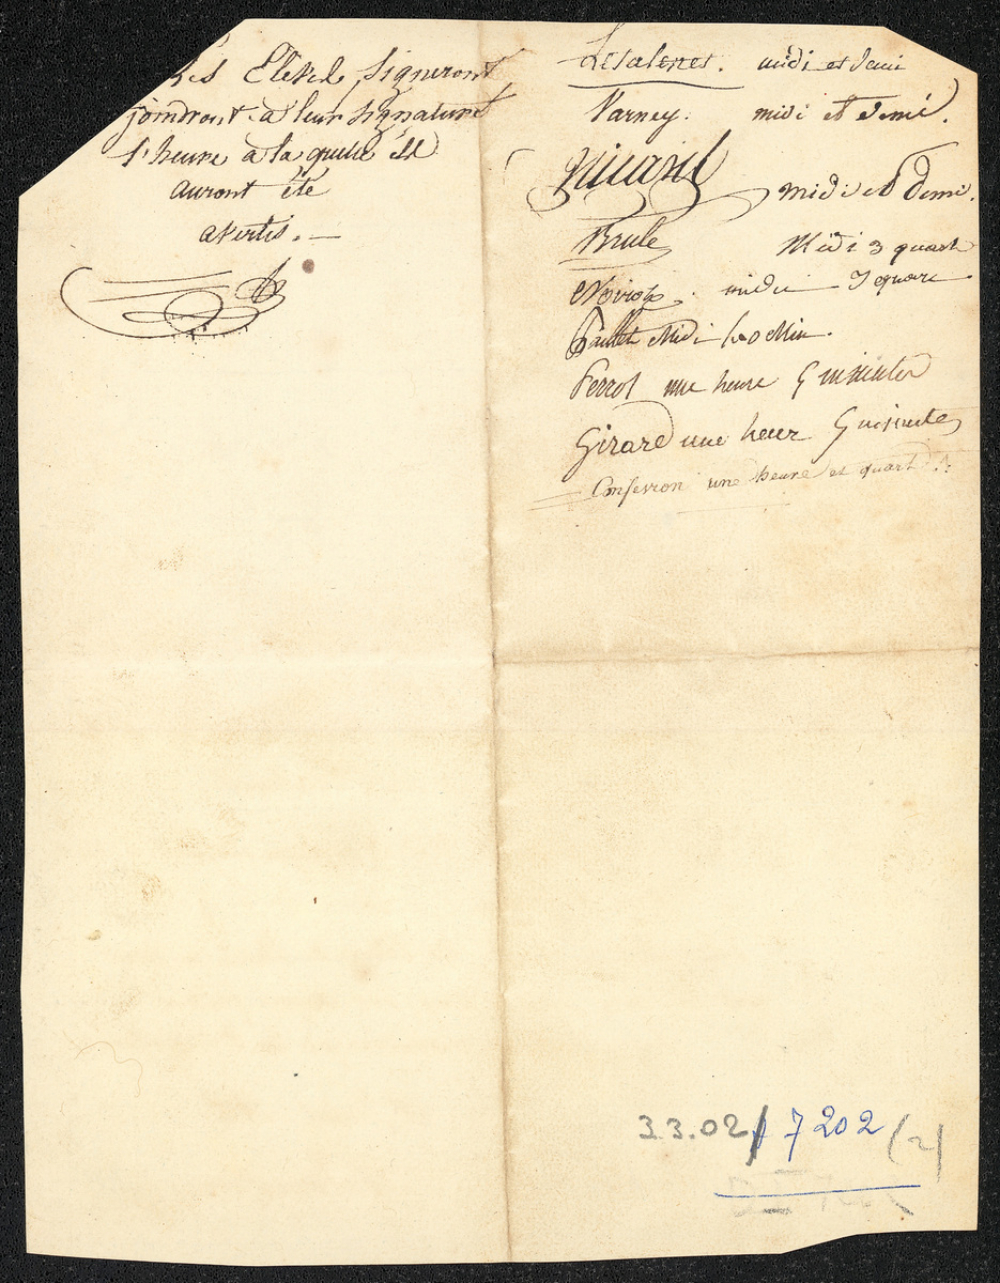 Les Eleves Signeront
joindront a leur signature
l'heure à la quelle ils
auront été
avertis. —
Lesalettes. midi et demi
Varney. midi et demi.
midi et demi.
Brulé Midi 3 quart
Noirot. midi 3 quart
Paillet Midi 50 Min.
Perrot une heure 5 minutes
Girard une heur 5 minutes
Confevron une heure et quart
3.3.02 / 7202 (2)